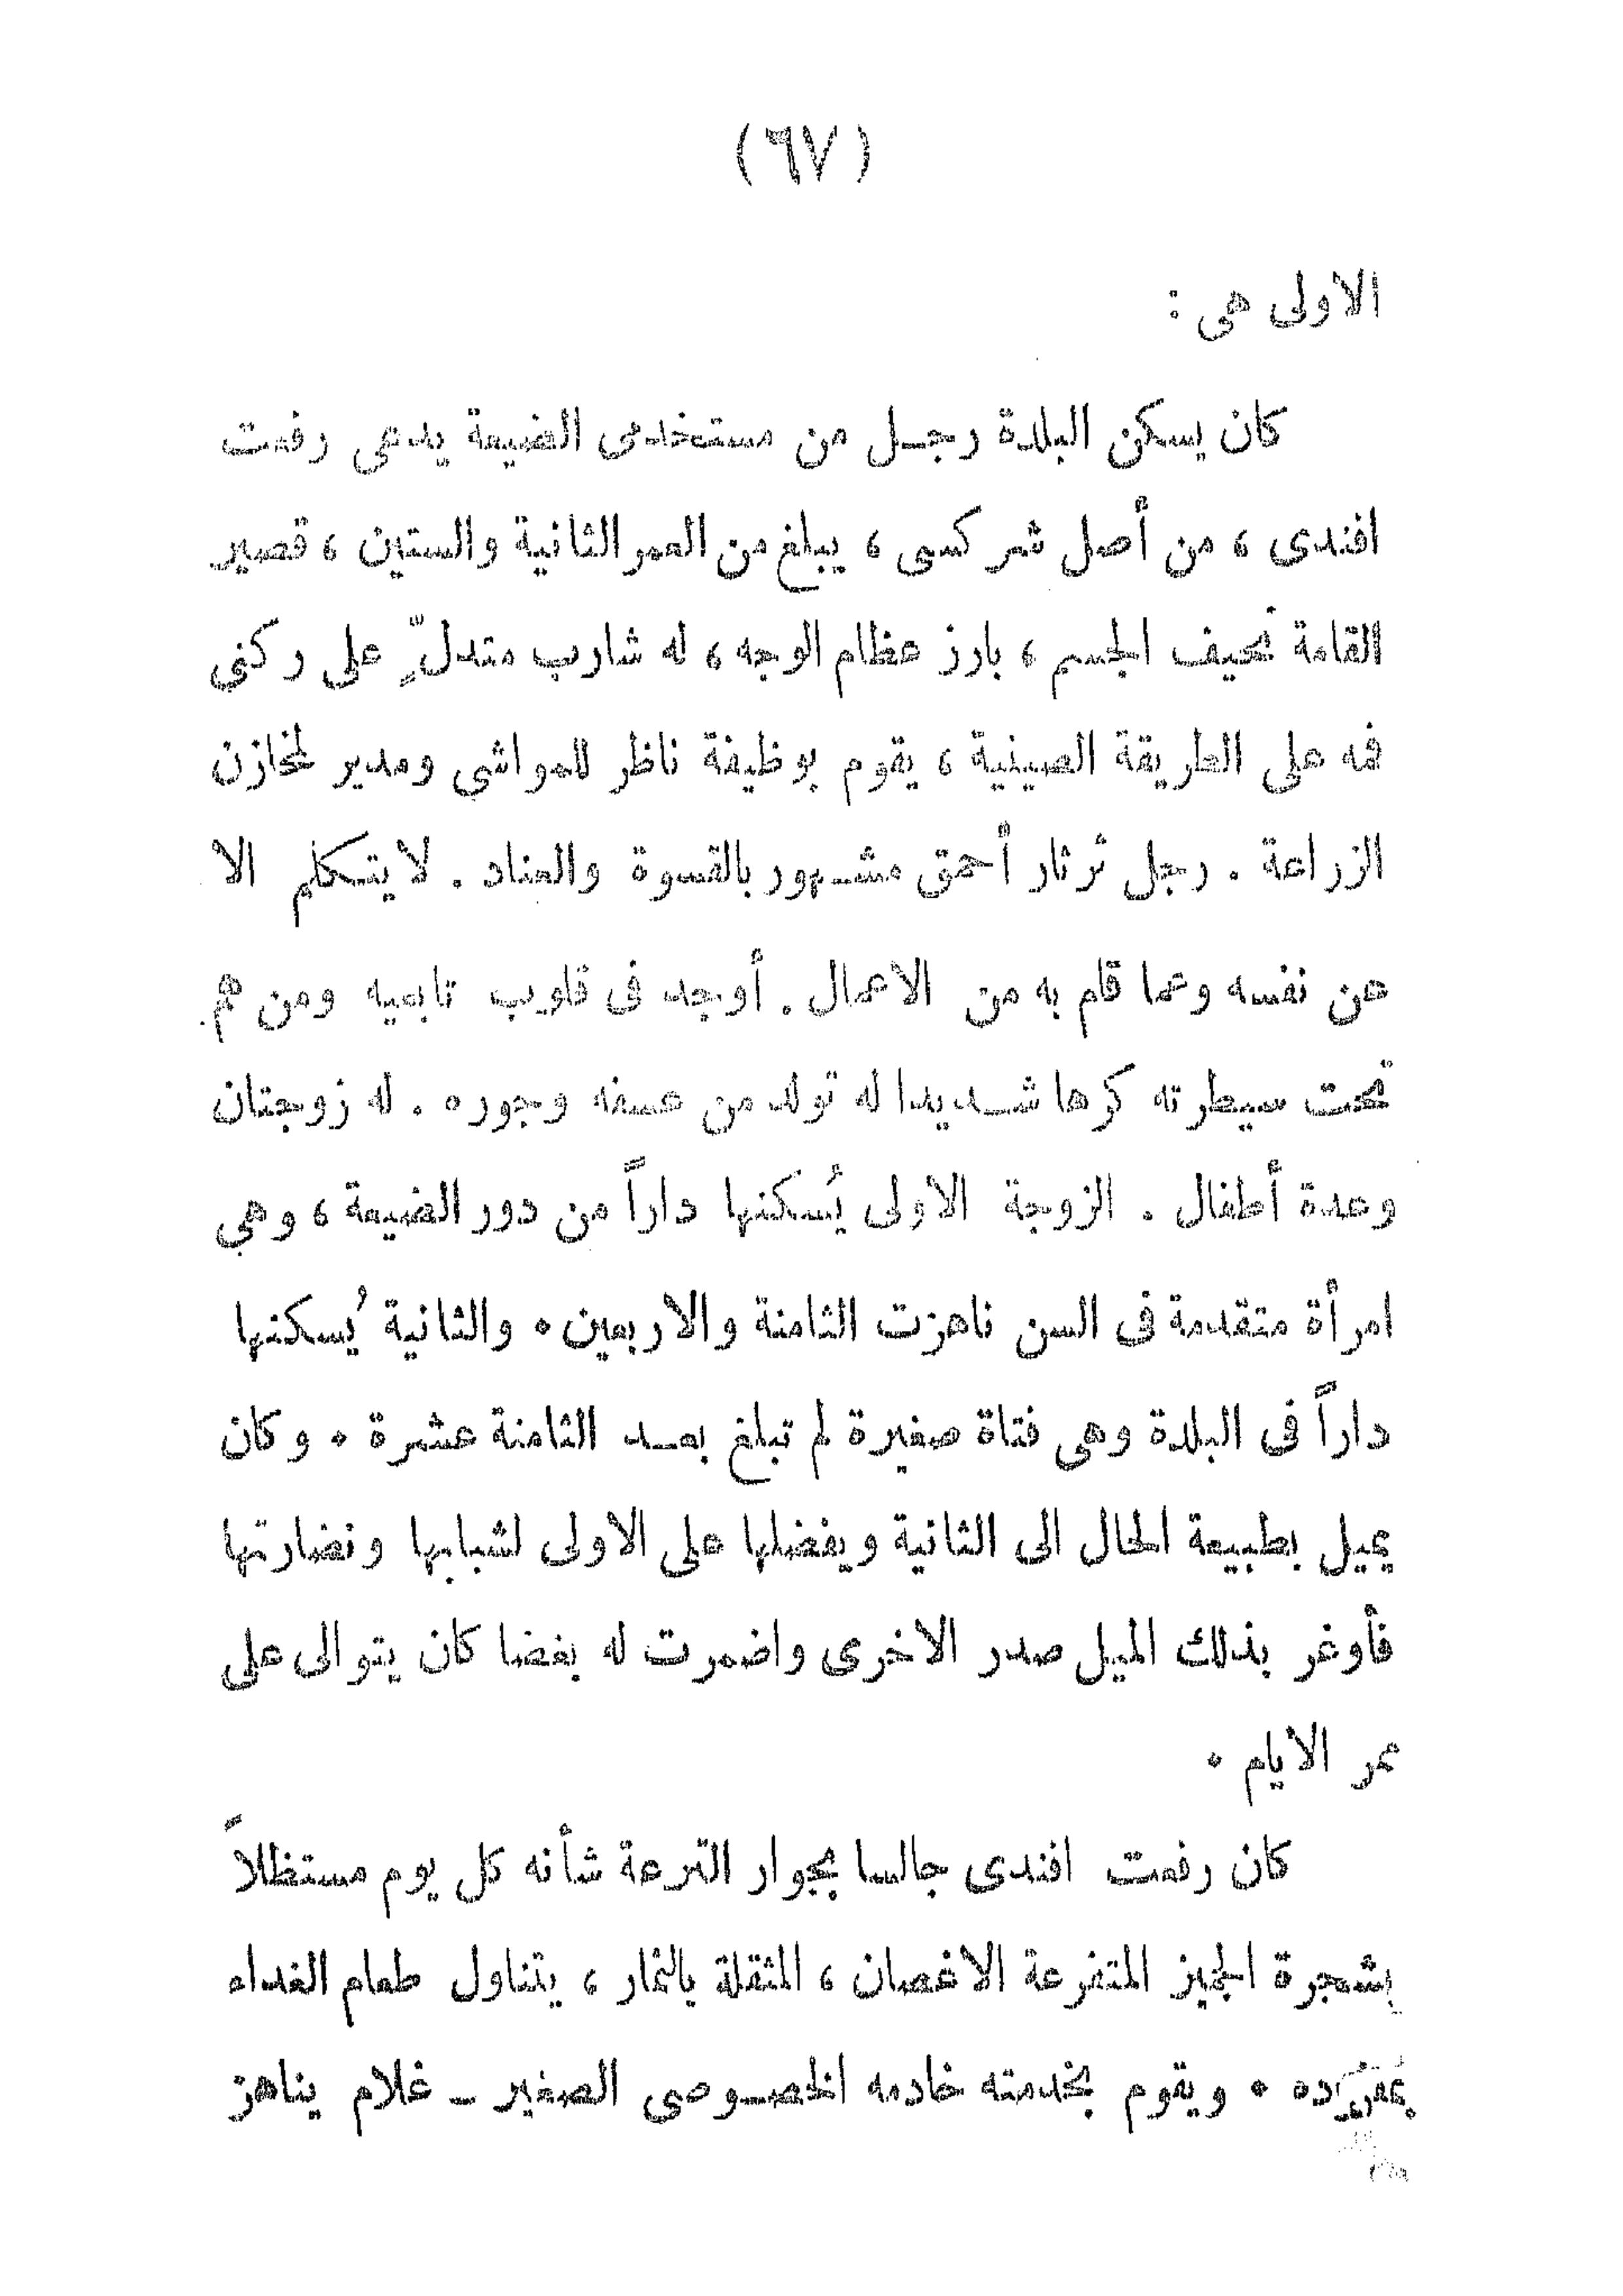 (٦٧)
الاولى هى :
كان يسكن البلدة رجـل من مستخدمى الضيعة يدعى رفعت
افندى ، من أصل شركسى ، يبلغ من العمر الثانية والستين ، قصير
القامة نحيف الجسم ، بارز عظام الوجه ، له شارب متدلٍّ على ركنى
فمه على الطريقة الصينية ، يقوم بوظيفة ناظر للمواشى ومدير لمخازن
الزراعة . رجل ثرثار أحمق مشـهور بالقسوة والعناد . لا يتـكلم الا
عن نفسه وعما قام به من الاعمال . أوجد فى قلوب تابعيه ومن هم
تحت سيطرته كرها شـديدا له تولد من عسفه وجوره . له زوجتان
وعدة أطفال . الزوجة الاولى يُسكنها داراً من دور الضيعة ، وهي
امرأة متقدمة فى السن ناهزت الثامنة والاربعين . والثانية يُسكنها
داراً فى البلدة وهى فتاة صغيرة لم تبلغ بعـد الثامنة عشرة . وكان
يميل بطبيعة الحال الى الثانية ويفضلها على الاولى لشبابها ونضارتها
فأوغر بذلك الميل صدر الاخرى واضمرت له بغضا كان يتوالى على
ممر الايام .
كان رفعت افندى جالسا بجوار الترعة شأنه كل يوم مستظلاً
بشجرة الجميز المتفرعة الاغصان ، المثقلة بالثمار ، يتناول طعام الغداء
بمفرده . ويقوم بخدمته خادمه الخصـوصى الصغير ــ غلام يناهز